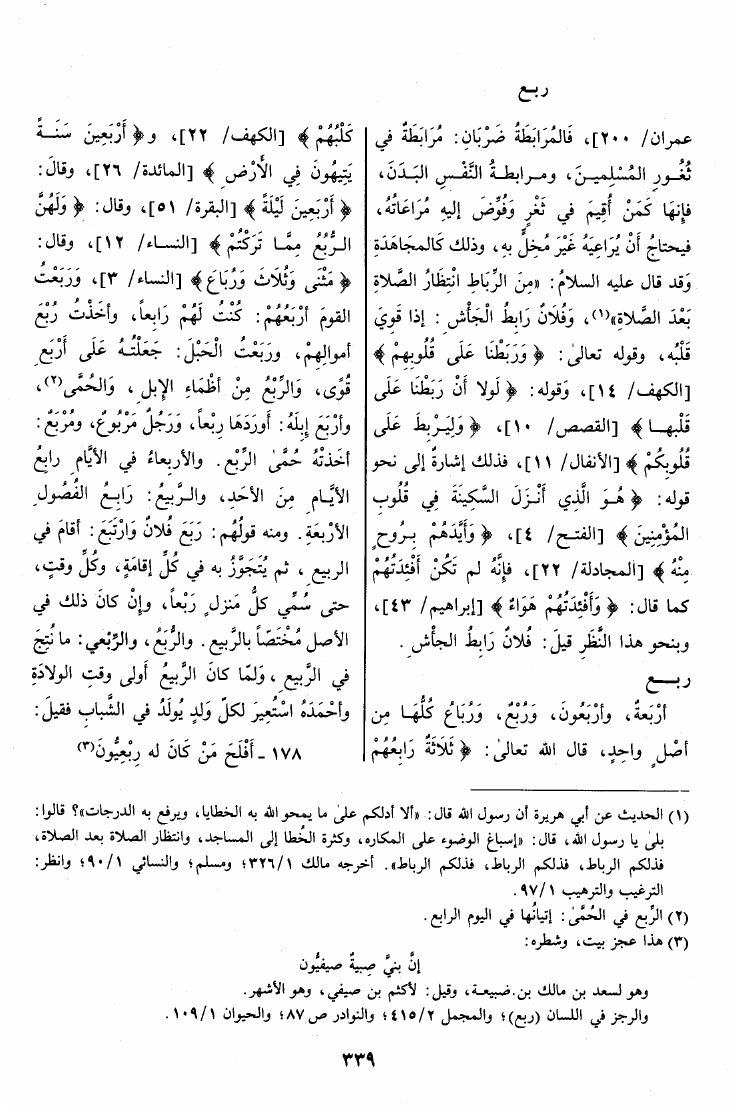 ربـع
عمران/ ٢٠٠]، فَالمُرَابَطَةُ ضَرْبَانِ: مُرَابَطَةٌ في
ثُغُـورِ المُسْلِميـنَ، ومـرابطـةُ النَّفْسِ البَـدَنَ،
فإنها كَمَنْ أُقِيمَ في ثَغْرٍ وَفُوِّضَ إليهِ مُرَاعَاتُهُ،
فيحتاجُ أنْ يُرَاعِيَهُ غَيْرَ مُخِلٍّ بهِ، وذلك كَالمجاهَدَةِ
وَقد قال عليه السلامُ: «مِنَ الرِّبَاطِ انْتِظَارُ الصَّلاةِ
بَعْدَ الصَّلاةِ»(١)، وَفُلَانٌ رَابِطُ الْجَأْشِ: إذا قَوِيَ
قَلْبُه، وقوله تعالىٰ: ﴿وَرَبَطْنَا عَلَى قُلُوبِهِمْ﴾
[الكهف/ ١٤]، وَقوله: ﴿لَولا أنْ رَبَطْنَا عَلَى
قَلْبهـا﴾ [القصص/ ١٠]، ﴿وَلِيَـرْبِطَ عَلَى
قُلُوبِكُمْ﴾ [الأنفال/ ١١]، فذلك إشارةٌ إلى نحو
قوله: ﴿هُـوَ الَّذِي أنْـزَلَ السَّكِينَةَ فِي قُلُوبِ
المُؤْمِنِينَ﴾ [الفتـح/ ٤]، ﴿وَأيَّدَهُمْ بِـرُوحٍ
مِنْهُ﴾ [المجادلة/ ٢٢]، فإنَّهُ لم تَكُنْ أفْئِدَتُهُمْ
كما قال: ﴿وَأفْئِدَتُهُمْ هَوَاءٌ﴾ [إبراهيم/ ٤٣]،
وبنحو هذا النَّظَرِ قيلَ: فُلانٌ رَابِطُ الجأْشِ.
ربـــع
أرْبَعَةٌ، وأرْبَعُونَ، وَرُبْعٌ، وَرُبَاعُ كُلُّهَـا مِن
أصْلٍ واحِدٍ، قال الله تعالىٰ: ﴿ثَلَاثَةٌ رَابِعُهُمْ
كَلْبُهُمْ﴾ [الكهف/ ٢٢]، و﴿أَرْبَعِينَ سَنَــةً
يَتِيهُونَ فِي الْأَرْضِ﴾ [المائدة/ ٢٦]، وقالَ:
﴿أَرْبَعِينَ لَيْلَةً﴾ [البقرة/ ٥١]، وقال: ﴿وَلَهُنَّ
الـرُّبُعُ مِمَّا تَرَكْتُمْ﴾ [النساء/ ١٢]، وقال:
﴿مَثْنَى وَثُلاثَ وَرُبَاعَ﴾ [النساء/ ٣]، وَرَبَعْتُ
القومَ أرْبَعُهُمْ: كُنْتُ لَهُمْ رَابعاً، وأخَذْتُ رُبْعَ
أموالِهِمْ، ورَبَعْتُ الْحَبْلَ: جَعَلْتُـهُ عَلَى أرْبَعِ
قُوًى، وَالرِّبْعُ مِنْ أظْمَاءِ الإبلِ، وَالحُمَّى(٢)،
وأرْبَعَ إبِلَهُ: أوْرَدَهَا رِبْعاً، وَرَجُلٌ مَرْبُوعٌ، ومُرْبَعٌ:
أخَذَتْهُ حُمَّىٰ الرِّبْعِ. والأربعاءُ في الأيَّامِ رابِعُ
الأيَّـامِ مِنَ الأحَدِ، والـرَّبيعُ: رَابِـعُ الفُصُولِ
الأرْبعَةِ. ومنه قولُهُم: رَبَعَ فُلانٌ وَارْتَبَعَ: أقامَ في
الربيعِ، ثم يُتَجَوَّزُ به في كُلِّ إقَامَةٍ، وكُلِّ وقتٍ،
حتى سُمِّيَ كلُّ منزلٍ رَبْعاً، وإنْ كانَ ذلك في
الأصلِ مُخْتَصّاً بالرَّبيعِ. والرُّبَعُ، والرِّبْعي: ما نُتِجَ
في الرَّبيعِ، وَلمّا كانَ الرَّبيعُ أولى وقتِ الوِلادَةِ
وأحْمَدَهُ اسْتُعِيرَ لكلِّ وَلدٍ يُولَدُ في الشَّبابِ فقيلَ:
١٧٨ - أَفْلَحَ مَنْ كَانَ له رِبْعِيُّونَ(٣)
(١) الحديث عن أبي هريرة أن رسول الله قال: «ألا أدلكم علىٰ ما يمحو الله به الخطايا، ويرفع به الدرجات»؟ قالوا:
بلىٰ يا رسول الله، قال: «إسباغ الوضوء على المكاره، وكثرة الخُطا إلى المساجد، وانتظار الصلاة بعد الصلاة،
فذلكم الرباط، فذلكم الرباط، فذلكم الرباط». أخرجه مالك ٣٢٦/١؛ ومسلم؛ والنسائي ٩٠/١؛ وانظر:
الترغيب والترهيب ٩٧/١.
(٢) الرِّبع في الحُمَّىٰ: إتيانُها في اليوم الرابع.
(٣) هذا عجز بيت، وشطره:
إنَّ بنيَّ صِبيةٌ صيفيُّون
وهو لسعد بن مالك بن ضبيعـة، وقيل: لأكثم بن صيفي، وهو الأشهر.
والرجز في اللسان (ربع)؛ والمجمل ٤١٥/٢؛ والنوادر ص ٨٧؛ والحيوان ١٠٩/١.
٣٣٩